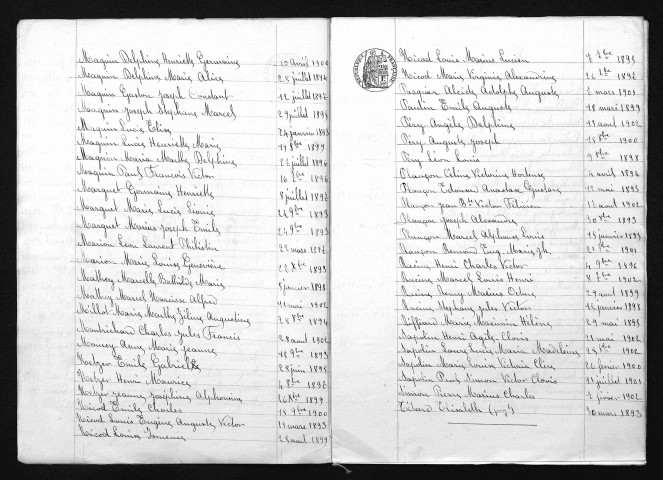 Maquin Delphine Henriette Germaine 10 avril 1900
Maquin Delphine Marie Alice 25 juillet 1894
Maquin Gaston Joseph Constant 12 juillet 1897
Maquin Joseph Stéphane Marcel 29 juillet 1895
Maquin Lucie Elise 24 janvier 1893
Maquin Lucie Henriette Marie 11 8bre 1899
Maquin Maria Mailly Delphine 22 juillet 1896
Maquin Paul François Victor 16 1896
Marguet Germaine Henriette 8 juillet 1897
Marguet Marie Lucie Léonie 24 9bre 1893
Marguet Marius Joseph Emile 24 9bre 1893
Marion Léon Laurent Philistin 22 mars 1897
Marion Marie Louise Geneviève 22 Xbre 1893
Mathey Marielly Marie 5 janvier 1898
Mathey Marcel Narcisse Alfred 11 mai 1902
Millot Marie Mailly Zéline Augustine 28 8bre 1894
Charles Jules Francis 28 aout 1902
Anne Marie Jeanne 18 9bre 1893
Metzger Emile Gabrielle 28 juin 1895
Metzger Henri Maurice 4 8bre 1897
Metzger Jeanne Joséphine Alphonsine 26 Xbre 1899
Nicod Emile Charles 15 9bre 1900
Nicod Louis Eugène Auguste Victor 11 mars 1893
Nicod Louise 28 aout 1899
Nicod Louis Marius Lucien 7 1895
Nicod Marie Virginie Alexandrine 26 1897
Pasquier Alcide Adolphe Auguste 2 mars 1901
Paulin Emile Auguste 18 mars 1899
Péry Angèle Delphine 11 aout 1902
Péry Auguste Joseph 15 8bre 1900
Péry Léon Louis 9 1898
Plançon Céline Victorine Hortense 4 avril 1894
Plançon Edouard Anastase Gustave 12 mai 1893
Plançon Jean Bte Victor Félicien 12 aout 1902
Plançon Joseph Alexandre 30 1893
Plançon Marcel Alphonse Louis 15 janvier 1895
Plançon Raymond Eug. Marie Jh. 21 1901
Racine Henri Charles Victor 4 9bre 1896
Racine Marcel Louis Henri 8 1902
Racine Rémy Marius 29 avril 1899
Racine Stéphane Jules Victor 16 janvier 1898
Siffriard Marie Maximin Hélène 29 mai 1895
Sapolin Henri Agile Clovis 21 mai 1902
Sapolin Laure Lucie Maria Madeleine 25 1902
Sapolin Marie Louise Victoria 24 février 1900
Sapolin Paul Simon Victor Clovis 21 juillet 1901
Simon Pierre Marius Charles 2 février 1902
Tétard Elisabeth 30 mars 1893